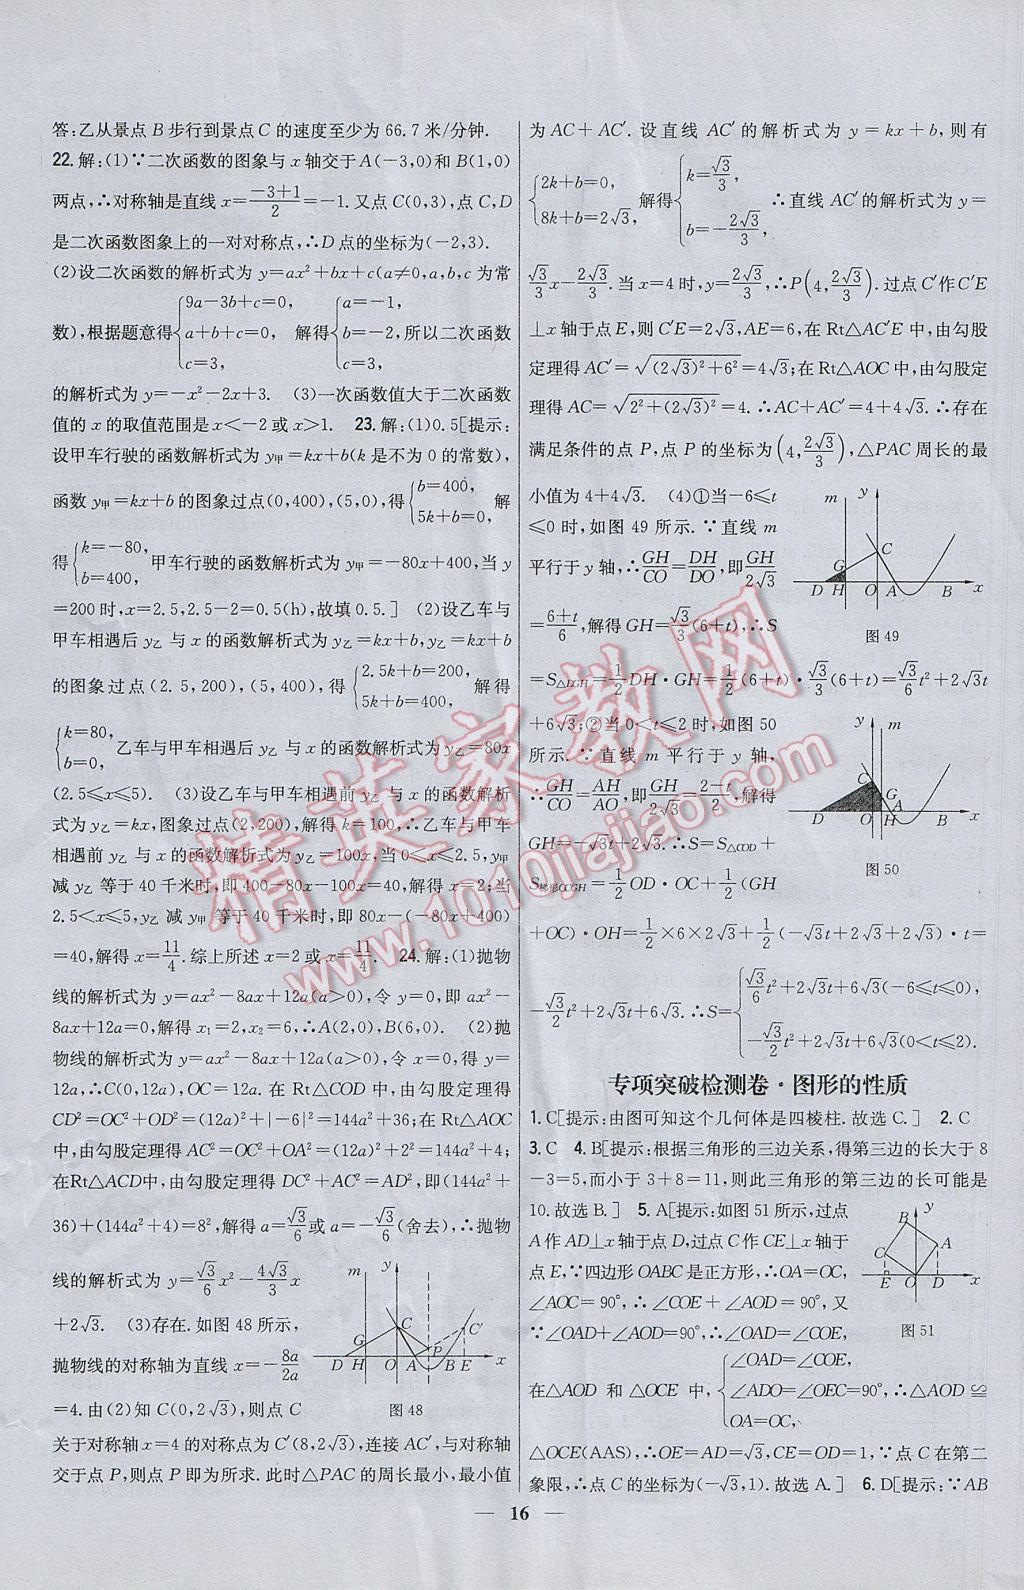 答:乙从景点 B 步行到景点 C 的速度至少为 66.7 米/分钟.
22.解:(1)∵二次函数的图象与 x 轴交于 A(-3,0)和 B(1,0)
两点,∴对称轴是直线 x=(-3+1)/2=-1.又点 C(0,3),点 C,D
是二次函数图象上的一对对称点,∴D 点的坐标为(-2,3).
(2)设二次函数的解析式为 y=ax²+bx+c(a≠0,a,b,c 为常
数),根据题意得{9a-3b+c=0, a+b+c=0, c=3, 解得{a=-1, b=-2, c=3, 所以二次函数
的解析式为 y=-x²-2x+3. (3)一次函数值大于二次函数
值的 x 的取值范围是 x<-2 或 x>1. 23.解:(1)0.5[提示:
设甲车行驶的函数解析式为 y甲=kx+b(k 是不为 0 的常数),
函数 y甲=kx+b 的图象过点(0,400),(5,0),得{b=400, 5k+b=0, 解
得{k=-80, b=400, 甲车行驶的函数解析式为 y甲=-80x+400,当 y
=200 时,x=2.5,2.5-2=0.5(h),故填 0.5.] (2)设乙车与
甲车相遇后 y乙 与 x 的函数解析式为 y乙=kx+b,y乙=kx+b
的图象过点(2.5,200),(5,400),得{2.5k+b=200, 5k+b=400, 解得
{k=80, b=0, 乙车与甲车相遇后 y乙 与 x 的函数解析式为 y乙=80x
(2.5≤x≤5). (3)设乙车与甲车相遇前 y乙 与 x 的函数解析
式为 y乙=kx,图象过点(2,200),解得 k=100,∴乙车与甲车
相遇前 y乙 与 x 的函数解析式为 y乙=100x,当 0≤x<2.5,y甲
减 y乙 等于 40 千米时,即 400-80x-100x=40,解得 x=2;当
2.5<x≤5,y乙 减 y甲 等于 40 千米时,即 80x-(-80x+400)
=40,解得 x=11/4.综上所述 x=2 或 x=11/4. 24.解:(1)抛物
线的解析式为 y=ax²-8ax+12a(a>0),令 y=0,即 ax²-
8ax+12a=0,解得 x₁=2,x₂=6,∴A(2,0),B(6,0). (2)抛
物线的解析式为 y=ax²-8ax+12a(a>0),令 x=0,得 y=
12a,∴C(0,12a),OC=12a.在 Rt△COD 中,由勾股定理得
CD²=OC²+OD²=(12a)²+|-6|²=144a²+36;在 Rt△AOC
中,由勾股定理得 AC²=OC²+OA²=(12a)²+2²=144a²+4;
在Rt△ACD中,由勾股定理得 DC²+AC²=AD²,即(144a²+
36)+(144a²+4)=8²,解得 a=√3/6或 a=-√3/6(舍去),∴抛物
线的解析式为 y=√3/6x²-4√3/3x
+2√3. (3)存在.如图 48 所示,
抛物线的对称轴为直线 x=-8a/2a
=4.由(2)知 C(0,2√3),则点 C
m y C C′ G P D H O A B E x
图 48
关于对称轴 x=4 的对称点为 C′(8,2√3),连接 AC′,与对称轴
交于点 P,则点 P 即为所求.此时△PAC 的周长最小,最小值
为 AC+AC′.设直线 AC′的解析式为 y=kx+b,则有
{2k+b=0, 8k+b=2√3, 解得{k=√3/3, b=-2√3/3, ∴直线 AC′的解析式为 y=
√3/3x-2√3/3.当 x=4 时,y=2√3/3,∴P(4,2√3/3).过点 C′作 C′E
⊥x 轴于点 E,则 C′E=2√3,AE=6,在 Rt△AC′E 中,由勾股
定理得 AC′=√((2√3)²+6²)=4√3;在 Rt△AOC 中,由勾股定
理得 AC=√(2²+(2√3)²)=4.∴AC+AC′=4+4√3.∴存在
满足条件的点 P,点 P 的坐标为(4,2√3/3),△PAC 周长的最
小值为 4+4√3. (4)①当-6≤t
≤0 时,如图 49 所示.∵直线 m
平行于 y 轴,∴GH/CO=DH/DO,即GH/2√3
=(6+t)/6,解得 GH=√3/3(6+t),∴S
m y C G D H O A B x
图 49
=S△DGH=1/2DH·GH=1/2(6+t)·√3/3(6+t)=√3/6t²+2√3t
+6√3;②当 0<t≤2 时,如图 50
所示.∵直线 m 平行于 y 轴,
∴GH/CO=AH/AO,即GH/2√3=(2-t)/2,解得
GH=-√3t+2√3.∴S=S△COD+
S梯形OCGH=1/2OD·OC+1/2(GH
y m C G A D O H B x
图 50
+OC)·OH=1/2×6×2√3+1/2(-√3t+2√3+2√3)·t=
-√3/2t²+2√3t+6√3.∴S={√3/6t²+2√3t+6√3(-6≤t≤0), -√3/2t²+2√3t+6√3(0<t≤2).
专项突破检测卷·图形的性质
1.C[提示:由图可知这个几何体是四棱柱.故选 C.] 2.C
3.C 4.B[提示:根据三角形的三边关系,得第三边的长大于 8
-3=5,而小于 3+8=11,则此三角形的第三边的长可能是
10.故选 B.] 5.A[提示:如图 51 所示,过点
A 作 AD⊥x 轴于点 D,过点 C 作 CE⊥x 轴于
点 E,∵四边形 OABC 是正方形,∴OA=OC,
∠AOC=90°,∴∠COE+∠AOD=90°,又
∵∠OAD+∠AOD=90°,∴∠OAD=∠COE,
y B A C E O D x
图 51
在△AOD 和 △OCE 中,{∠OAD=∠COE, ∠ADO=∠OEC=90°, OA=OC, ∴△AOD≌
△OCE(AAS),∴OE=AD=√3,CE=OD=1,∵点 C 在第二
象限,∴点 C 的坐标为(-√3,1).故选 A.] 6.D[提示:∵AB
— 16 —
精英家教网
www.1010jiajiao.com